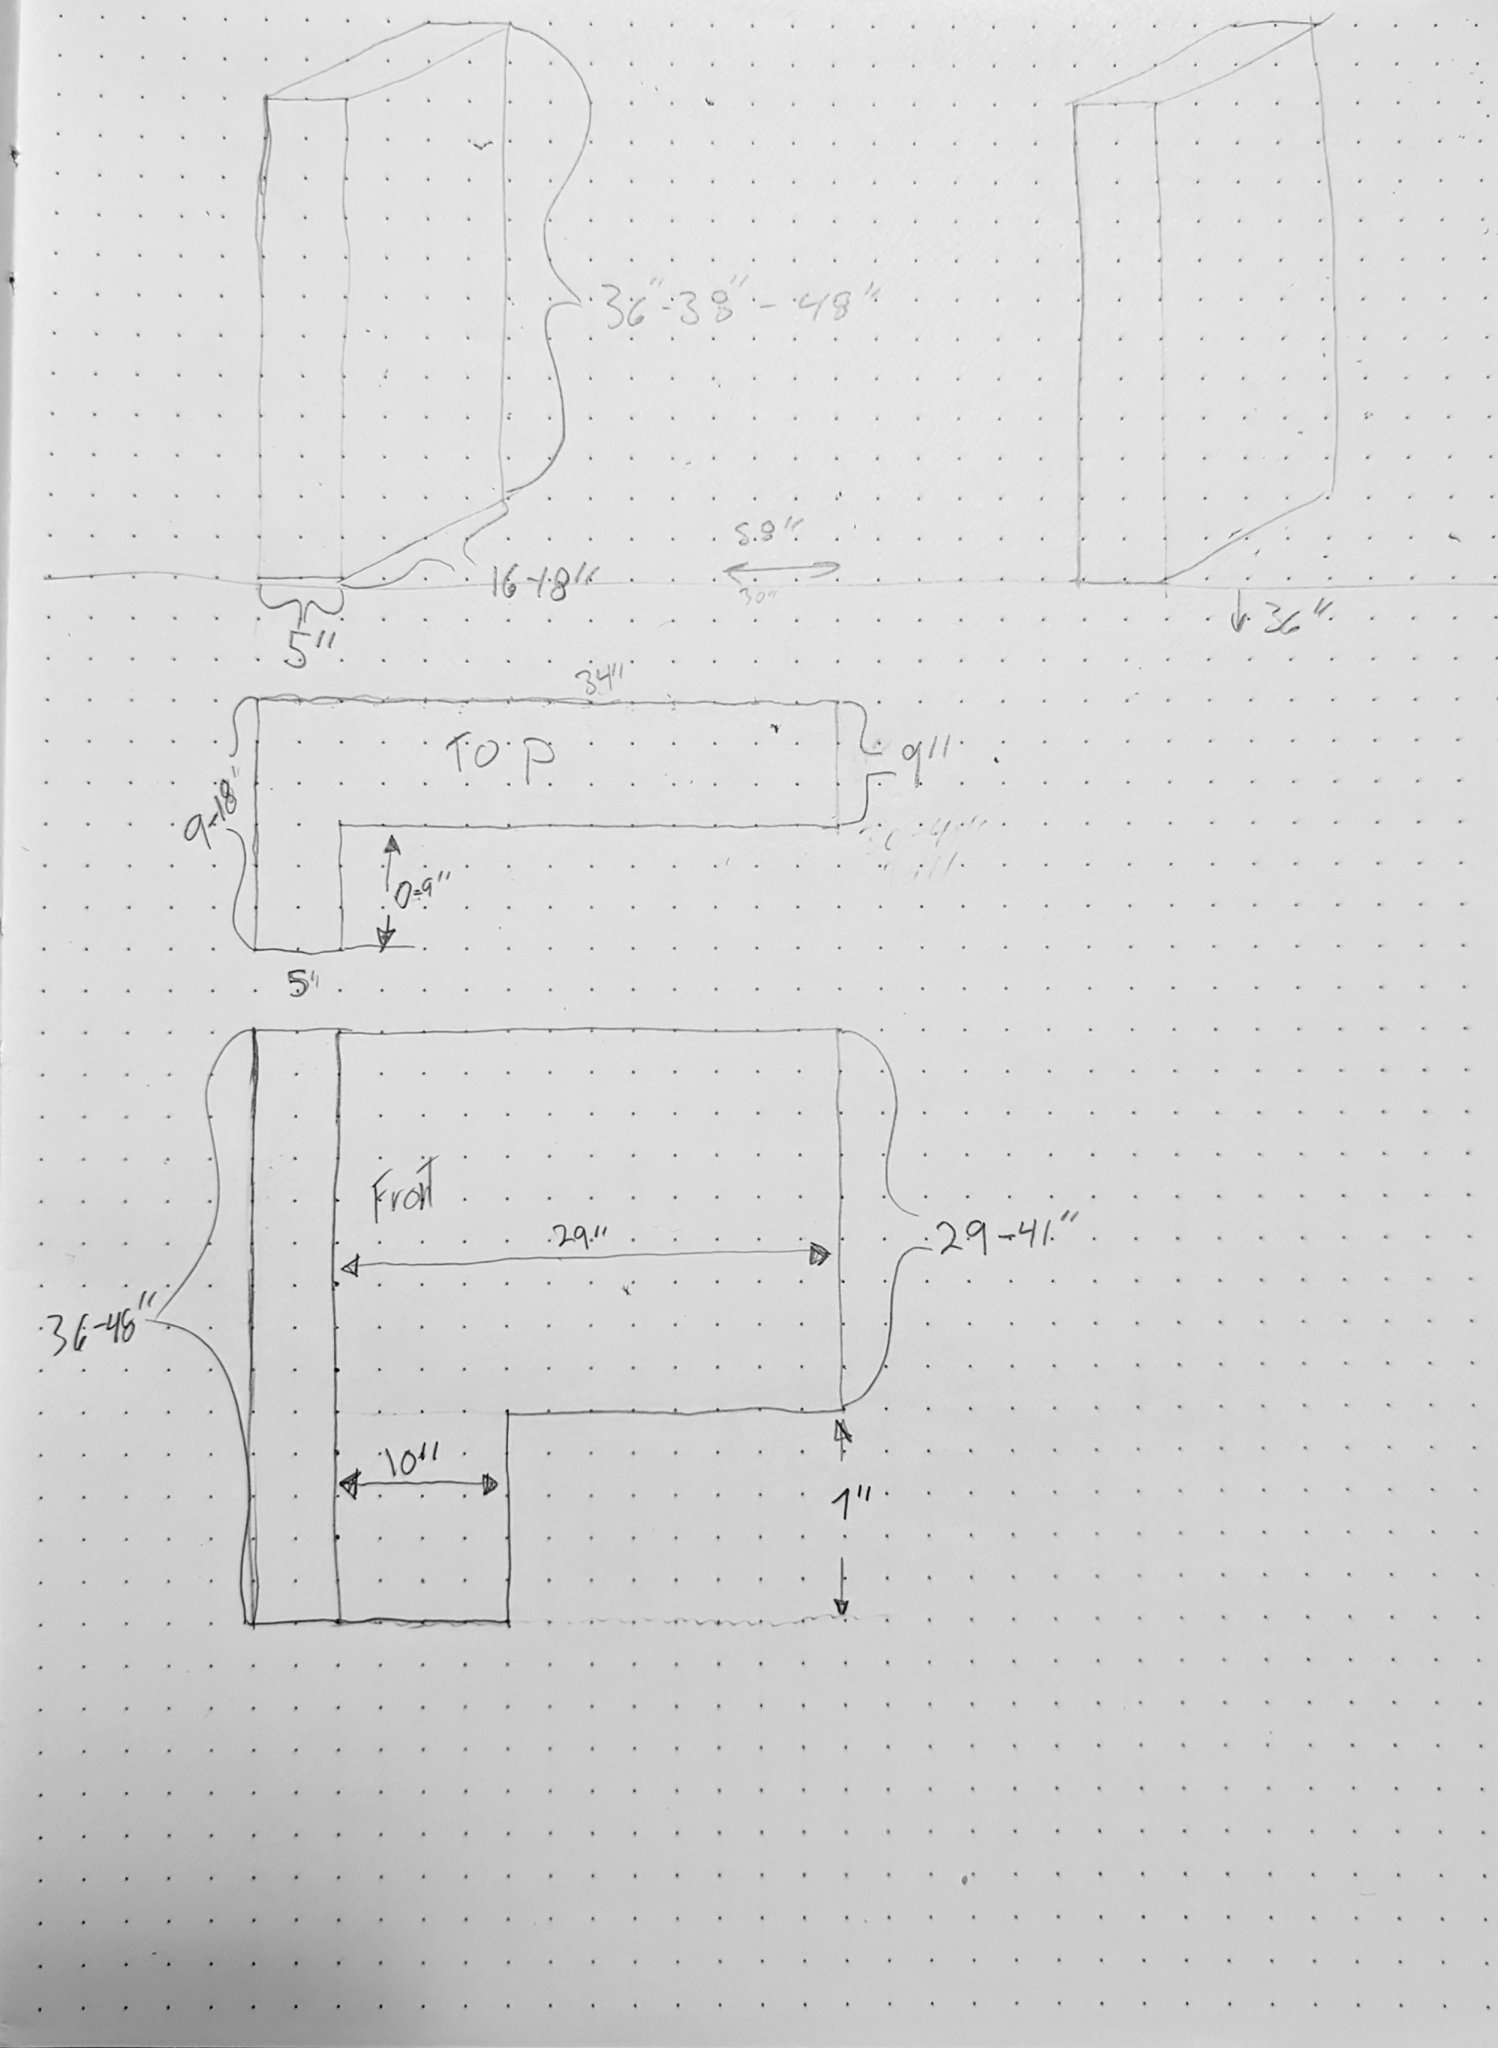 36"-38"-48"
58"
30"
16-18"
5"
36"
34"
Top
9"
9-18"
0-9"
5"
Front
29"
29-41"
36-48"
10"
7"